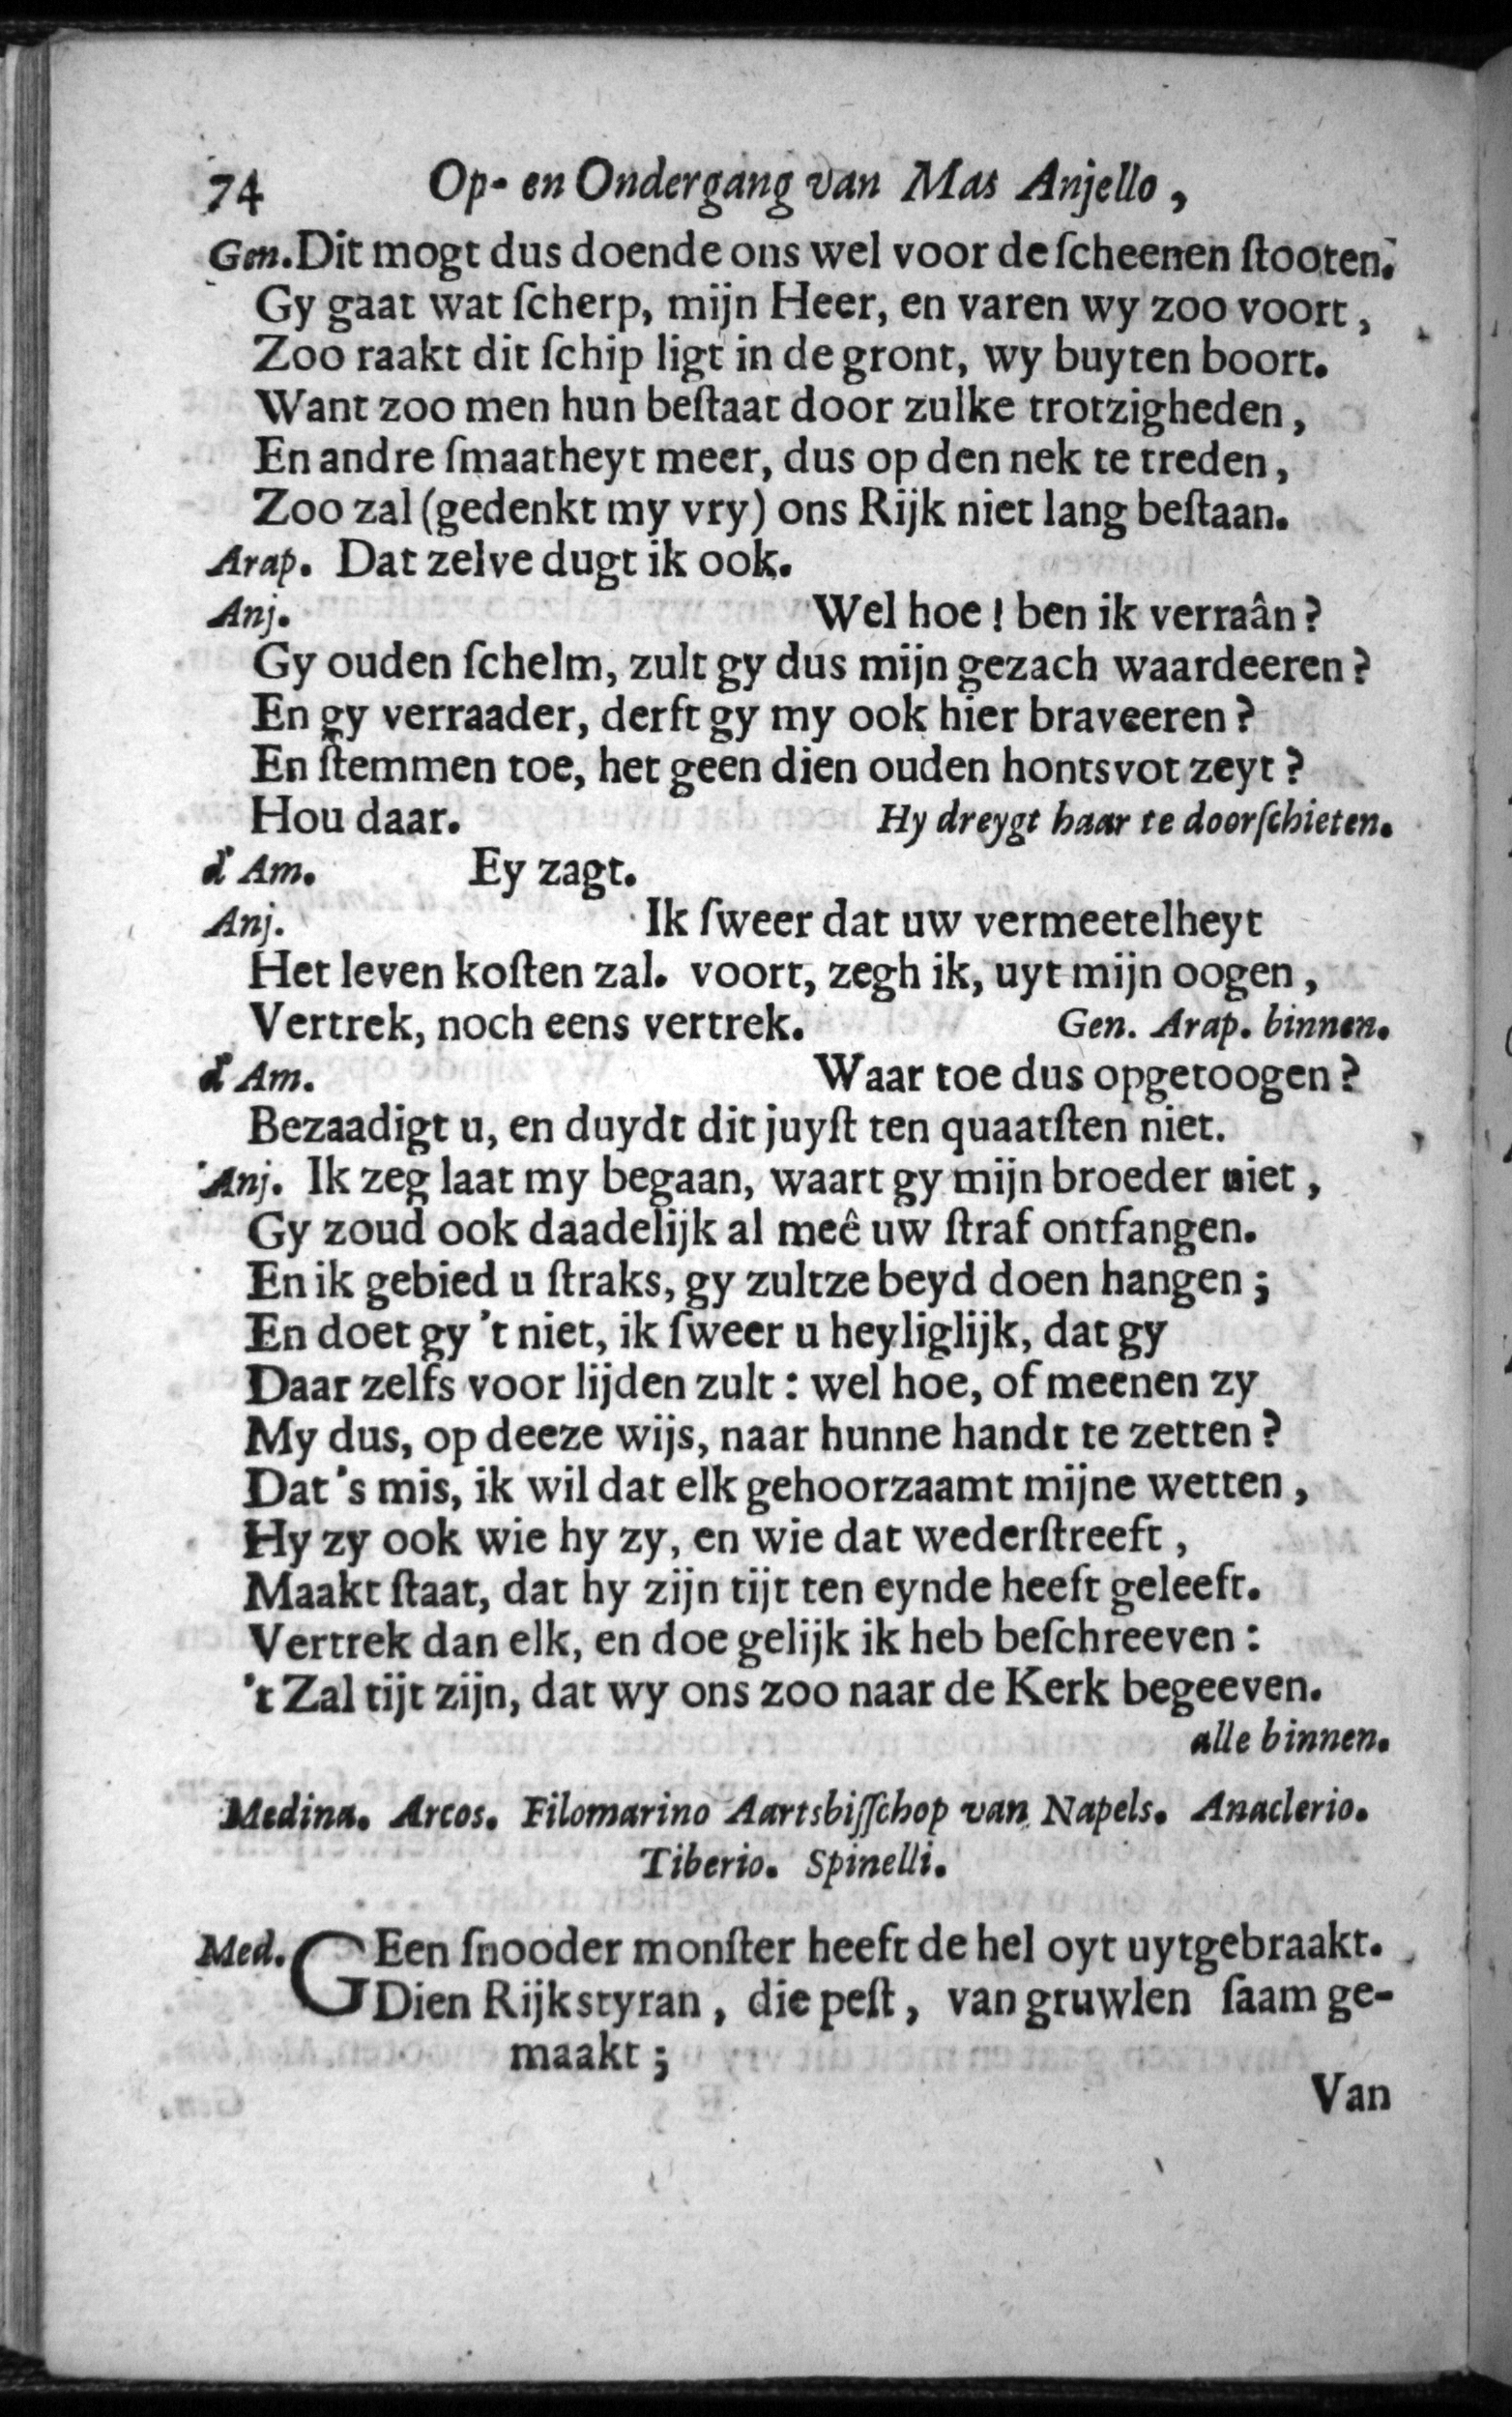 74 Op- en Ondergang van Mas Anjello,
Gen. Dit mogt dus doende ons wel voor de ſcheenen ſtooten.
Gy gaat wat ſcherp, mijn Heer, en varen wy zoo voort,
Zoo raakt dit ſchip ligt in de gront, wy buyten boort.
Want zoo men hun beſtaat door zulke trotzigheden,
En andre ſmaatheyt meer, dus op den nek te treden,
Zoo zal (gedenkt my vry) ons Rijk niet lang beſtaan.
Arap. Dat zelve dugt ik ook.
Anj. Wel hoe! ben ik verraân?
Gy ouden ſchelm, zult gy dus mijn gezach waardeeren?
En gy verraader, derft gy my ook hier braveeren?
En ſtemmen toe, het geen dien ouden hontsvot zeyt?
Hou daar. Hy dreygt haar te doorſchieten.
d' Am. Ey zagt.
Anj. Ik ſweer dat uw vermeetelheyt
Het leven koſten zal. voort, zegh ik, uyt mijn oogen,
Vertrek, noch eens vertrek. Gen. Arap. binnen.
d' Am. Waar toe dus opgetoogen?
Bezaadigt u, en duydt dit juyſt ten quaatſten niet.
Anj. Ik zeg laat my begaan, waart gy mijn broeder niet,
Gy zoud ook daadelijk al meê uw ſtraf ontfangen.
En ik gebied u ſtraks, gy zultze beyd doen hangen;
En doet gy 't niet, ik ſweer u heyliglijk, dat gy
Daar zelfs voor lijden zult: wel hoe, of meenen zy
My dus, op deeze wijs, naar hunne handt te zetten?
Dat 's mis, ik wil dat elk gehoorzaamt mijne wetten,
Hy zy ook wie hy zy, en wie dat wederſtreeft,
Maakt ſtaat, dat hy zijn tijt ten eynde heeft geleeft.
Vertrek dan elk, en doe gelijk ik heb beſchreeven:
't Zal tijt zijn, dat wy ons zoo naar de Kerk begeeven.
alle binnen.
Medina. Arcos. Filomarino Aartsbiſſchop van Napels. Anaclerio.
Tiberio. Spinelli.
Med. GEen ſnooder monſter heeft de hel oyt uytgebraakt.
Dien Rijkstyran, die peſt, van gruwlen ſaam ge-
maakt;
Van